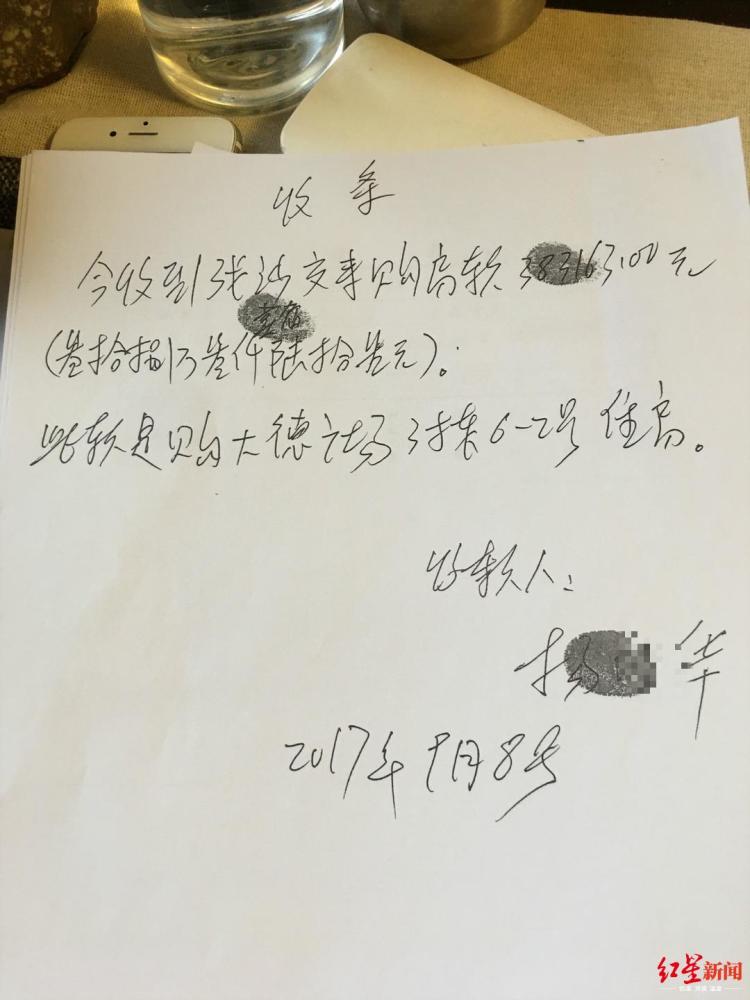 收条
今收到张 交来购房款383163.00元
壹佰
(叁拾捌万叁仟陆拾叁元)。
此款是购大德广场3栋6-2号住房。
收款人:
杨 华
2017年9月8号
红星新闻